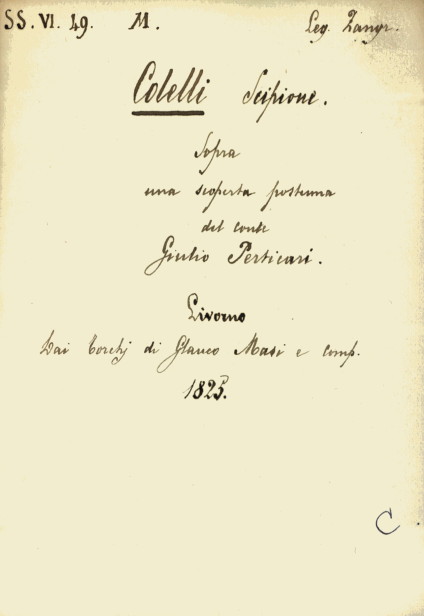 SS. VI. 49. M. Leg. Zangr.
Colelli Scipione.
Sopra
una scoperta postuma
del conte
Giulio Perticari.
Livorno
Dai Torchj di Glauco Masi e comp.
1825.
C